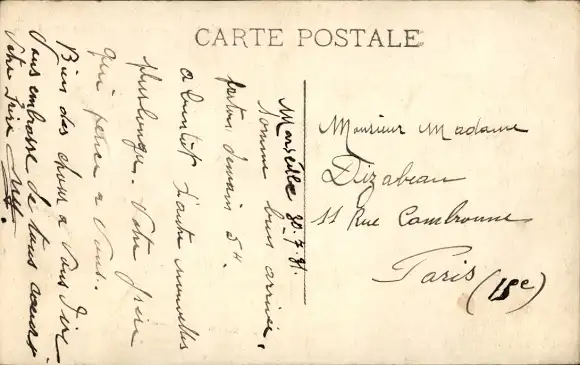 CARTE POSTALE
Marseille 30.7.31.
Somme bien arriver,
partons demain 5H.
a bientôt d'autre nouvelles
plus longue. Votre frère
qui pense a Vous.
Bien des chose a Vous dire
Vous embrasse de tous coeur
Votre Frère
Monsieur Madame
Dizabeau
11 Rue Cambronne
Paris (15e)